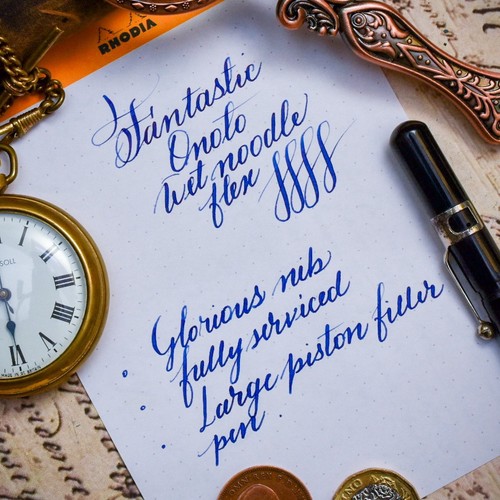 RHODIA
Fantastic
Onoto
wet noodle
flex
Glorious nib
fully serviced
Large piston filler
pen.